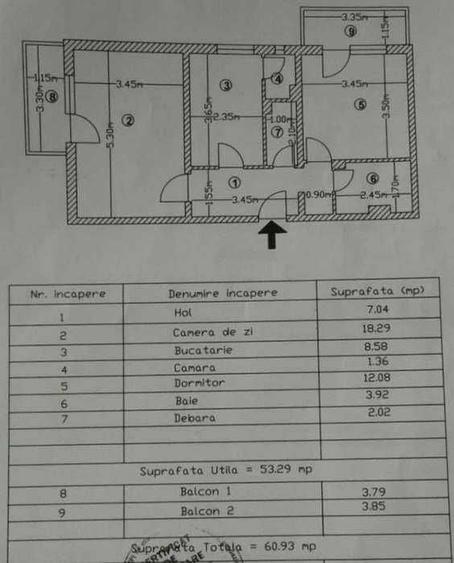 3.35m
9
1.15m
1.15m
3.30m
8
3.45m
2
5.30m
3
3.65m
2.35m
4
1.00m
7
2.10m
3.45m
5
3.50m
1
1.55m
3.45m
0.90m
6
2.45m
1.70m
Nr. incapere Denumire incapere Suprafata (mp)
1 Hol 7.04
2 Camera de zi 18.29
3 Bucatarie 8.58
4 Camara 1.36
5 Dormitor 12.08
6 Baie 3.92
7 Debara 2.02
Suprafata Utila = 53.29 mp
8 Balcon 1 3.79
9 Balcon 2 3.85
Suprafata Totala = 60.93 mp